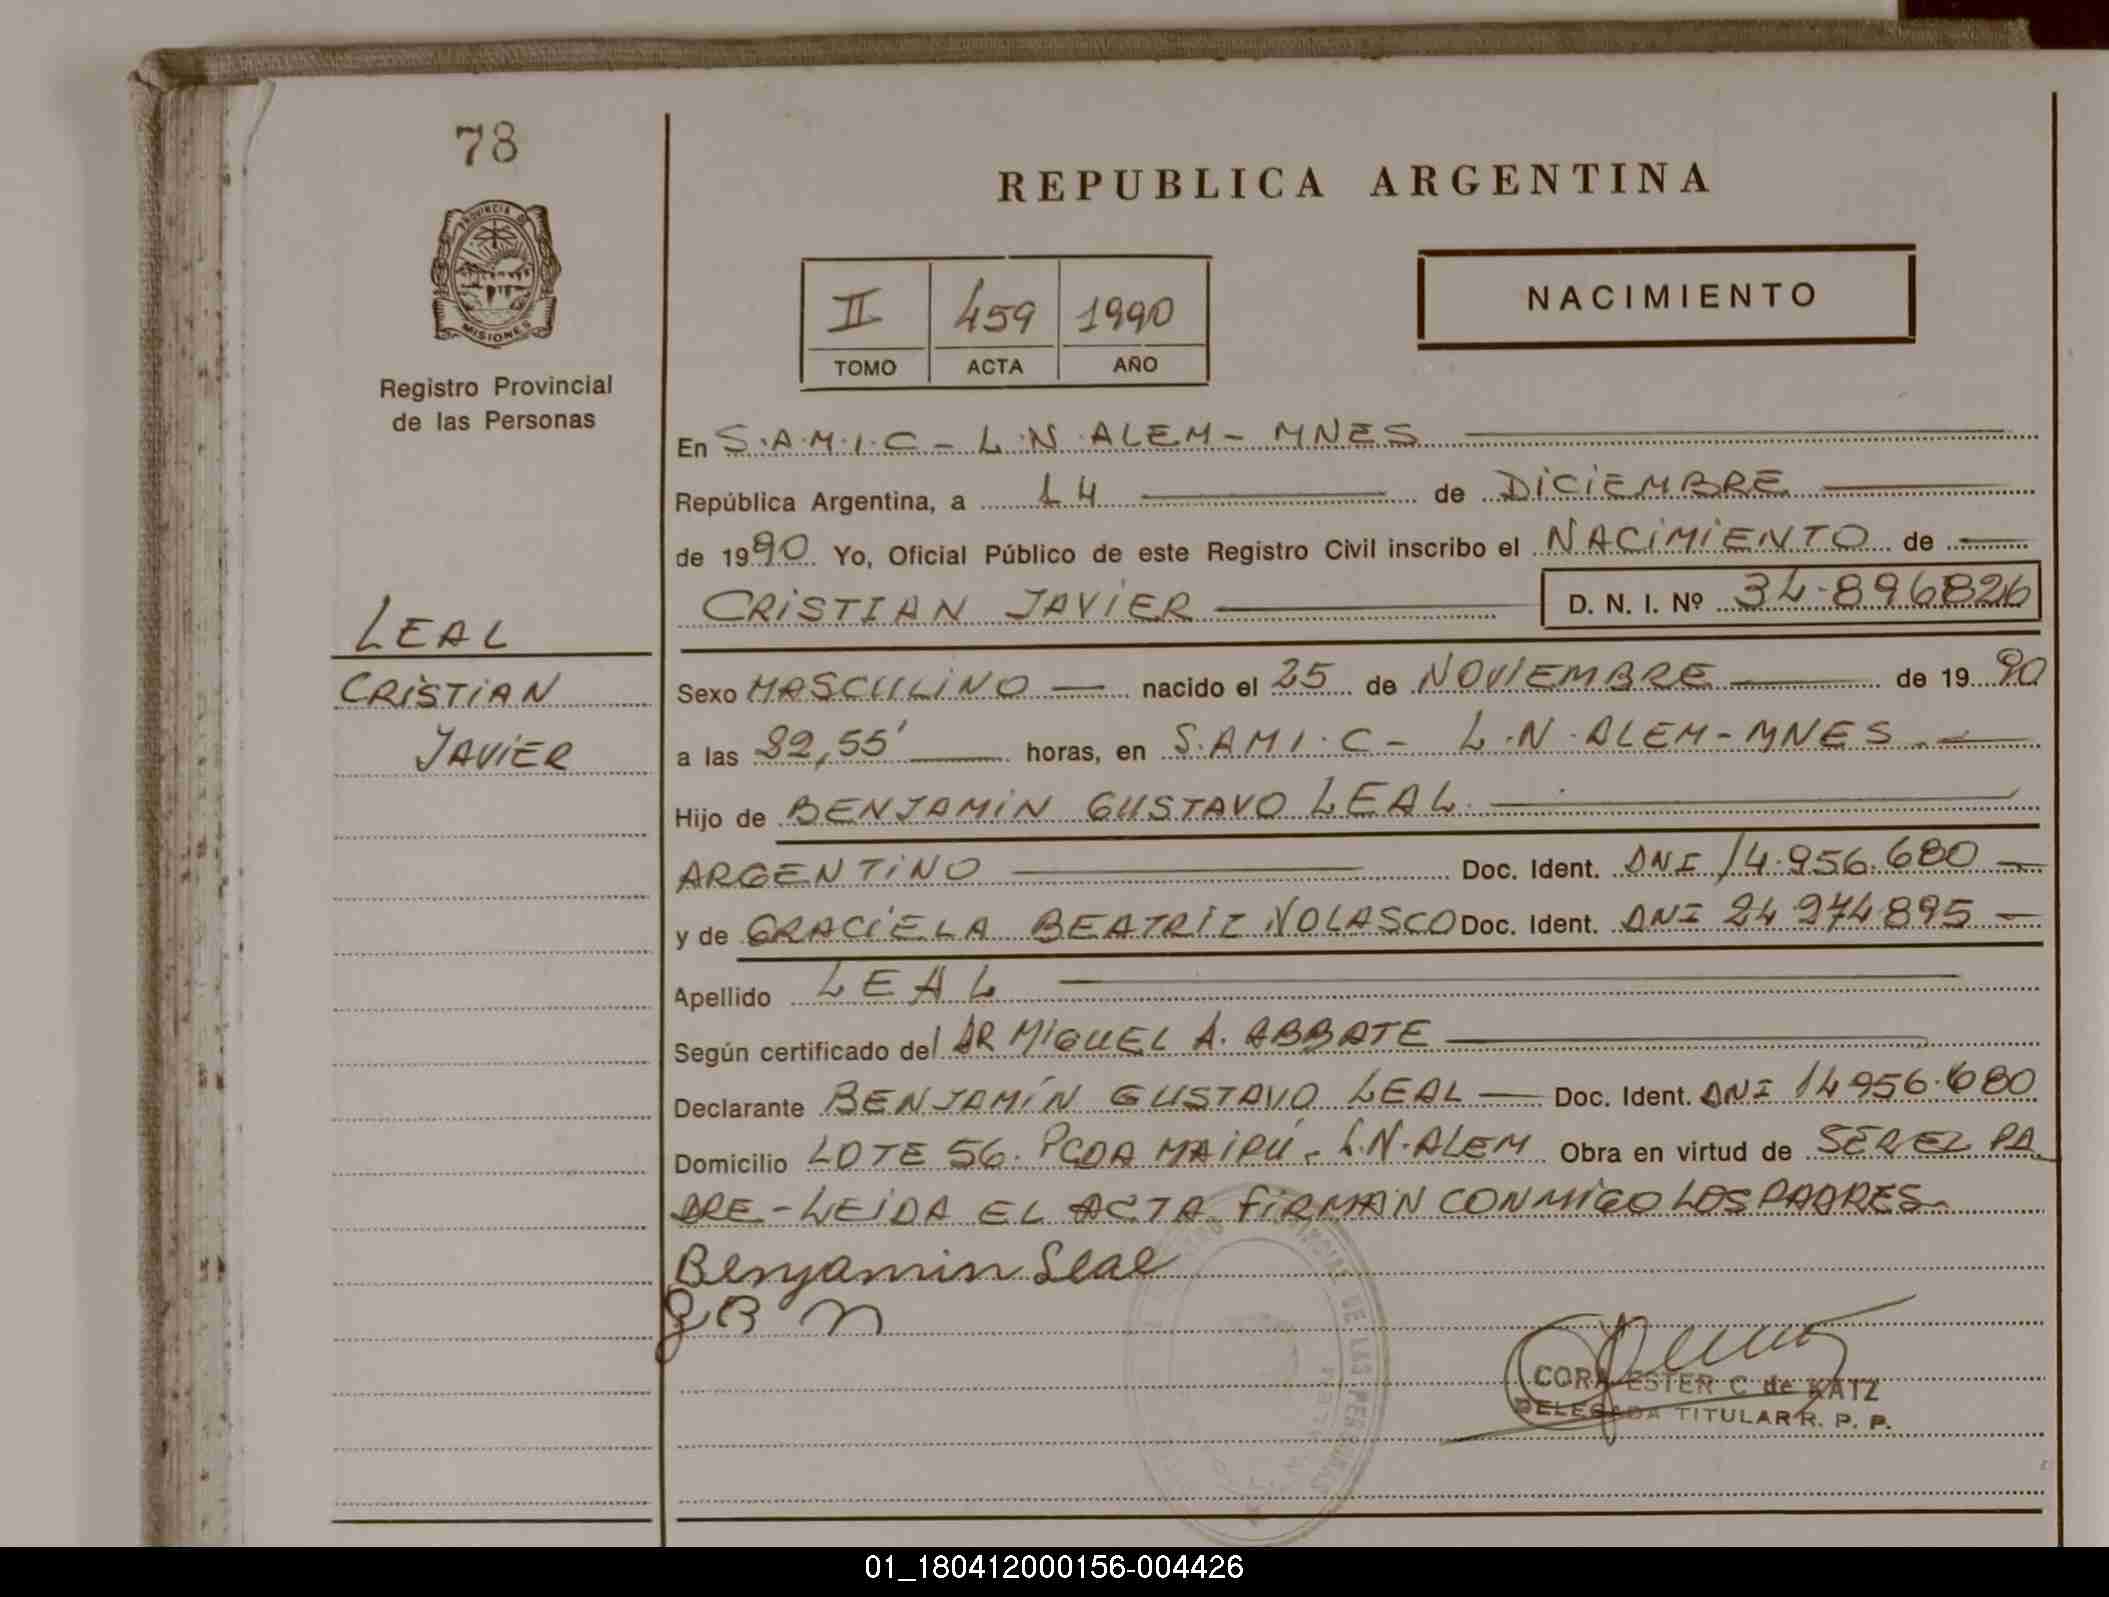 78
REPUBLICA ARGENTINA
PROVINCIA DE
MISIONES
Registro Provincial
de las Personas
II 459 1990
TOMO ACTA AÑO
NACIMIENTO
En S.A.M.I.C - L.N. ALEM - MNES
República Argentina, a 14 de DICIEMBRE
de 1990 Yo, Oficial Público de este Registro Civil inscribo el NACIMIENTO de
CRISTIAN JAVIER D. N. I. Nº 34.896826
LEAL
CRISTIAN
JAVIER
Sexo MASCULINO nacido el 25 de NOVIEMBRE de 19 90
a las 22,55' horas, en S.AMI.C - L.N. ALEM - MNES
Hijo de BENJAMIN GUSTAVO LEAL
ARGENTINO Doc. Ident. DNI 14.956.680
y de GRACIELA BEATRIZ NOLASCO Doc. Ident. DNI 24 274 895
Apellido LEAL
Según certificado del DR MIGUEL A. ABBATE
Declarante BENJAMÍN GUSTAVO LEAL Doc. Ident. DNI 14 956.680
Domicilio LOTE 56. PCDA MAIPÚ - L.N. ALEM Obra en virtud de SER EL PA
DRE - LEIDA EL ACTA FIRMAN CONMIGO LOS PADRES
Benjamin Leal
G B N
CORA ESTER C de KATZ
DELEGADA TITULAR R. P. P.
DE LAS PERSONAS
01_180412000156-004426